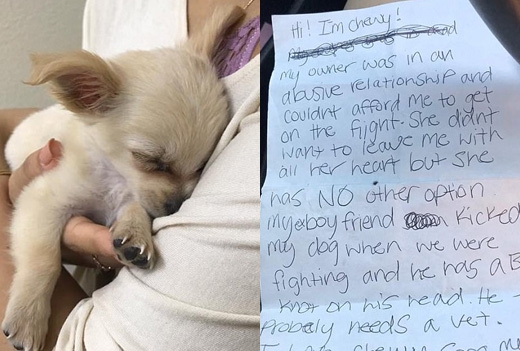 Hi! I'm Chewy!
my owner was in an
abusive relationship and
couldnt afford me to get
on the flight. She didnt
want to leave me with
all her heart but she
has NO other option
my ex boy friend kicked
my dog when we were
fighting and he has a B
Knot on his head. He
Probaly needs a vet.